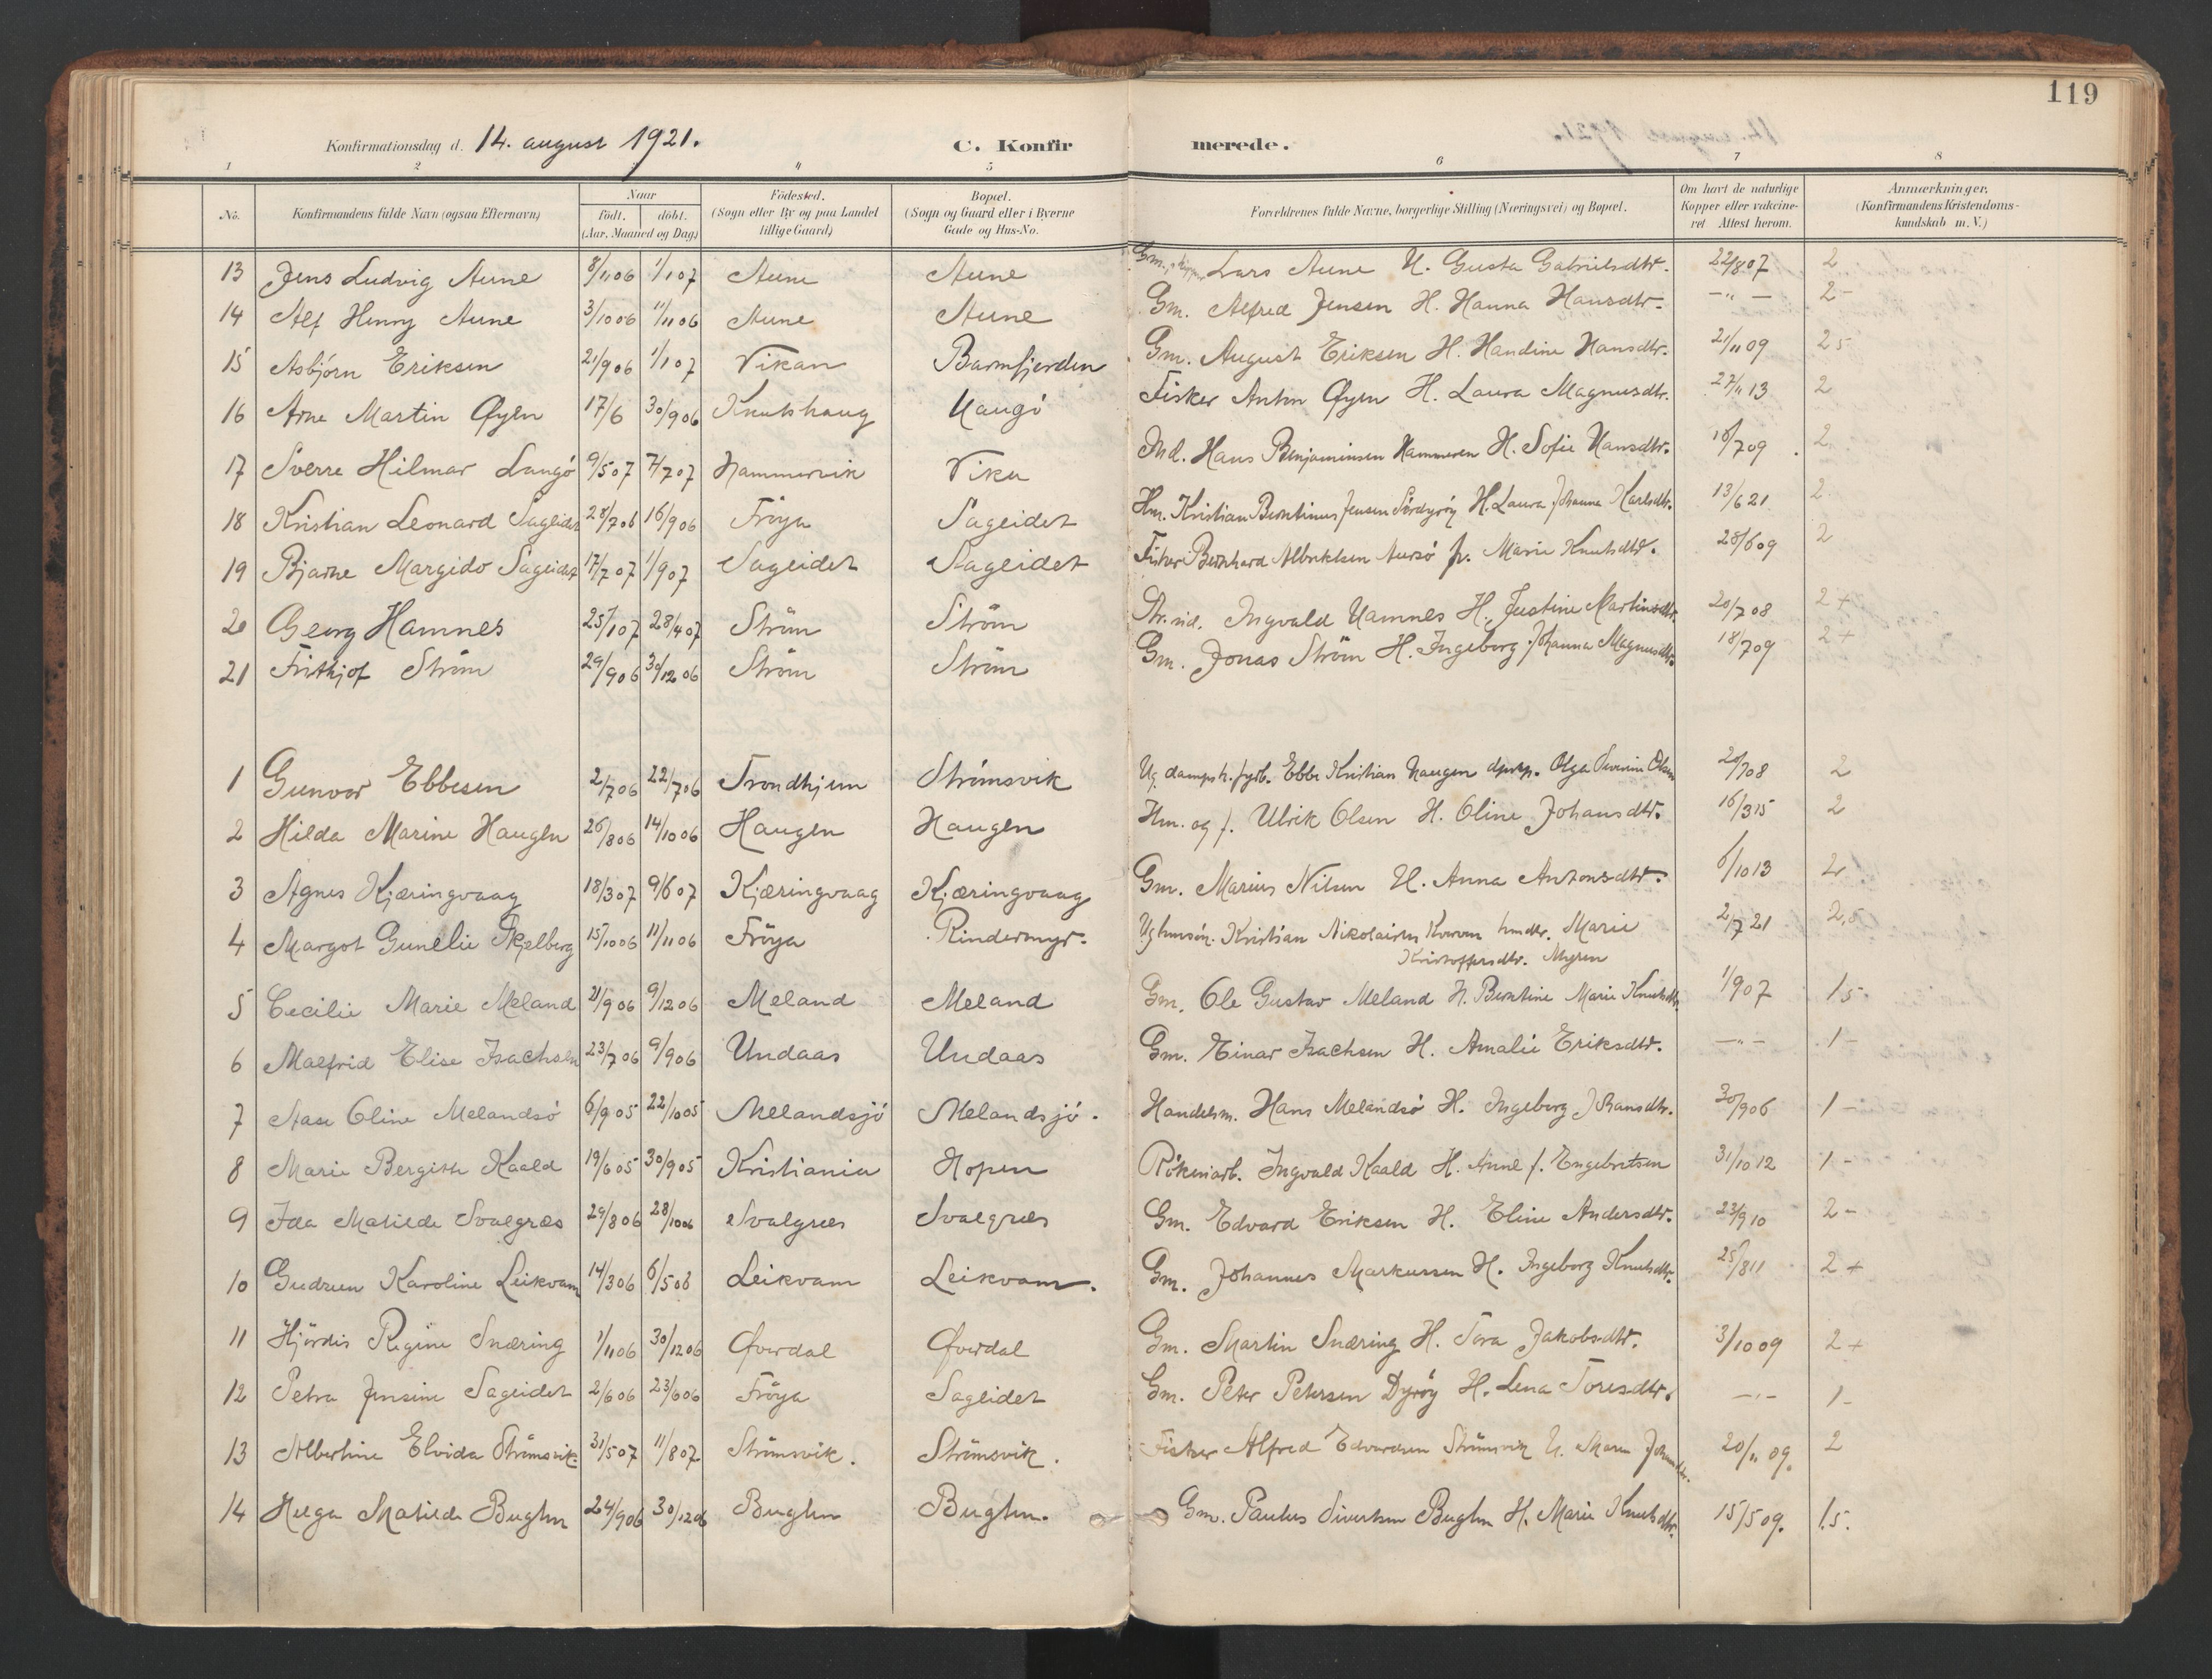 119
Konfirmationsdag d. 14. august 1921. C. Konfirmerede.
1 2 3 4 5 6 7 8
No. Konfirmandens fulde Navn (ogsaa Efternavn) Naar födt. döbt. (Aar, Maaned og Dag) Födested. (Sogn eller By og paa Landet tillige Gaard) Bopæl. (Sogn og Gaard eller i Byerne Gade og Hus-No. Forældrenes fulde Navne, borgerlige Stilling (Næringsvei) og Bopæl. Om havt de naturlige Kopper eller vakcineret Attest herom. Anmærkninger. (Konfirmandens Kristendomskundskab m.V.)
13 Jens Ludvig Aune 8/11 06 1/1 07 Aune Aune Gm. Lars Aune H. Gusta Gabrielsdtr. 22/8 07 2
14 Alf Henry Aune 3/10 06 11/11 06 Aune Aune Gm. Alfred Jensen H. Hanna Hansdtr. —"— 2-
15 Asbjörn Eriksen 21/9 06 1/1 07 Vikan Barmfjorden Gm. August Eriksen H. Handine Hansdtr. 21/11 09 2 5
16 Arne Martin Øyen 17/6 30/9 06 Knutshaug Haugö Fisker Anton Øyen H. Laura Magnusdtr. 27/11 13 2
17 Sverre Hilmar Langö 9/5 07 7/7 07 Hammervik Vika Ind. Hans Benjaminsen Hammeren H. Sofie Hansdtr. 18/7 09 2
18 Kristian Leonard Sageidet 28/7 06 16/9 06 Fröya Sageidet Hm. Kristian Berntinus Jensen Sördyröy H. Laura Johanna Karlsdtr. 13/6 21 2
19 Bjarne Margido Sageidet 17/7 07 1/9 07 Sageidet Sageidet Fisker Bernhard Albriktsen Aursö fr. Marie Knutsdtr. 28/6 09 2
20 Georg Hamnes 25/1 07 28/4 07 Ström Ström Str.sid. Ingvald Hamnes H. Justine Martinsdtr. 20/7 08 2 +
21 Frithjof Ström 29/9 06 30/12 06 Ström Ström Gm. Jonas Ström H. Ingeborg Johanna Magnusdtr. 18/7 09 2 +
1 Gunvor Ebbesen 2/7 06 22/7 06 Trondhjem Strömsvik Ug. dampsk. fyrb. Ebbe Kristian Haugen Olga Severine 20/7 08 2
2 Hilda Marine Haugen 26/8 06 14/10 06 Haugen Haugen Hm. og f. Ulrik Olsen H. Oline Johansdtr. 16/3 15 2
3 Agnes Kjæringvaag 18/3 07 9/6 07 Kjæringvaag Kjæringvaag Gm. Marius Nilsen H. Anna Antonsdtr. 6/10 13 2
4 Margot Gunelie Skjelberg 15/10 06 11/11 06 Fröya Rindermyr. Ug hmsön. Kristian Nikolaisen hmdtr. Marie 2/7 21 2,5
Kristoffersdtr. Myren
5 Cecilie Marie Meland 21/9 06 9/12 06 Meland Meland Gm. Ole Gustav Meland H. Berntine Marie Knutsdtr. 1/9 07 1 5
6 Malfrid Elise Isachsen 23/7 06 9/9 06 Undaas Undaas Gm. Einar Isachsen H. Amalie Eriksdtr. —"— 1-
7 Aase Oline Melandsö 6/9 05 22/10 05 Melandsjö Melandsjö. Handelsm. Hans Melandsö H. Ingeborg Johansdtr. 30/9 06 1-
8 Marie Bergitte Kaald 19/6 05 30/9 05 Kristiania Hopen Rökeriarb. Ingvald Kaald H. Anne f. Engebretsen 31/10 12 1-
9 Ida Matilde Svalgræs 29/8 06 28/10 06 Svalgræs Svalgræs Gm. Edvard Eriksen H. Eline Andersdtr. 23/9 10 2-
10 Gudrun Karoline Leikvam 14/3 06 6/5 06 Leikvam Leikvam. Gm. Johannes Markussen H. Ingeborg Knutsdtr. 25/8 11 2 +
11 Hjördis Regine Snæring 1/11 06 30/12 06 Øverdal Øverdal Gm. Martin Snæring H. Tora Jakobsdtr. 3/10 09 2 +
12 Petra Jensine Sageidet 2/6 06 23/6 06 Fröya Sageidet Gm. Peter Petersen Dyröy H. Lena Toresdtr. —"— 1-
13 Albertine Elvida Strömsvik 31/5 07 11/8 07 Strömsvik. Strömsvik. Fisker Alfred Edvardsen Strömsvik H. Maren 20/11 09. 2
14 Helga Matilde Bughn 24/9 06 30/12 06 Bughn Bughn. Gm. Paulus Sivertsen Bughn H. Marie Knutsdtr. 15/5 09. 1.5.